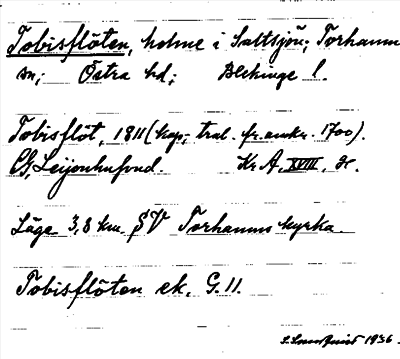 Tobisflöten, holme i Saltsjön; Torhamn
sn; Östra hd; Blekinge l.
Tobisflöt, 1811 (kop; tral. fr. omkr. 1700).
CG, Leijonhufvud. Kr. A. XVIII, Sr.
Läge 3,8 km SV Torhamns kyrka.
Tobisflöten ek. G. 11.
1936.